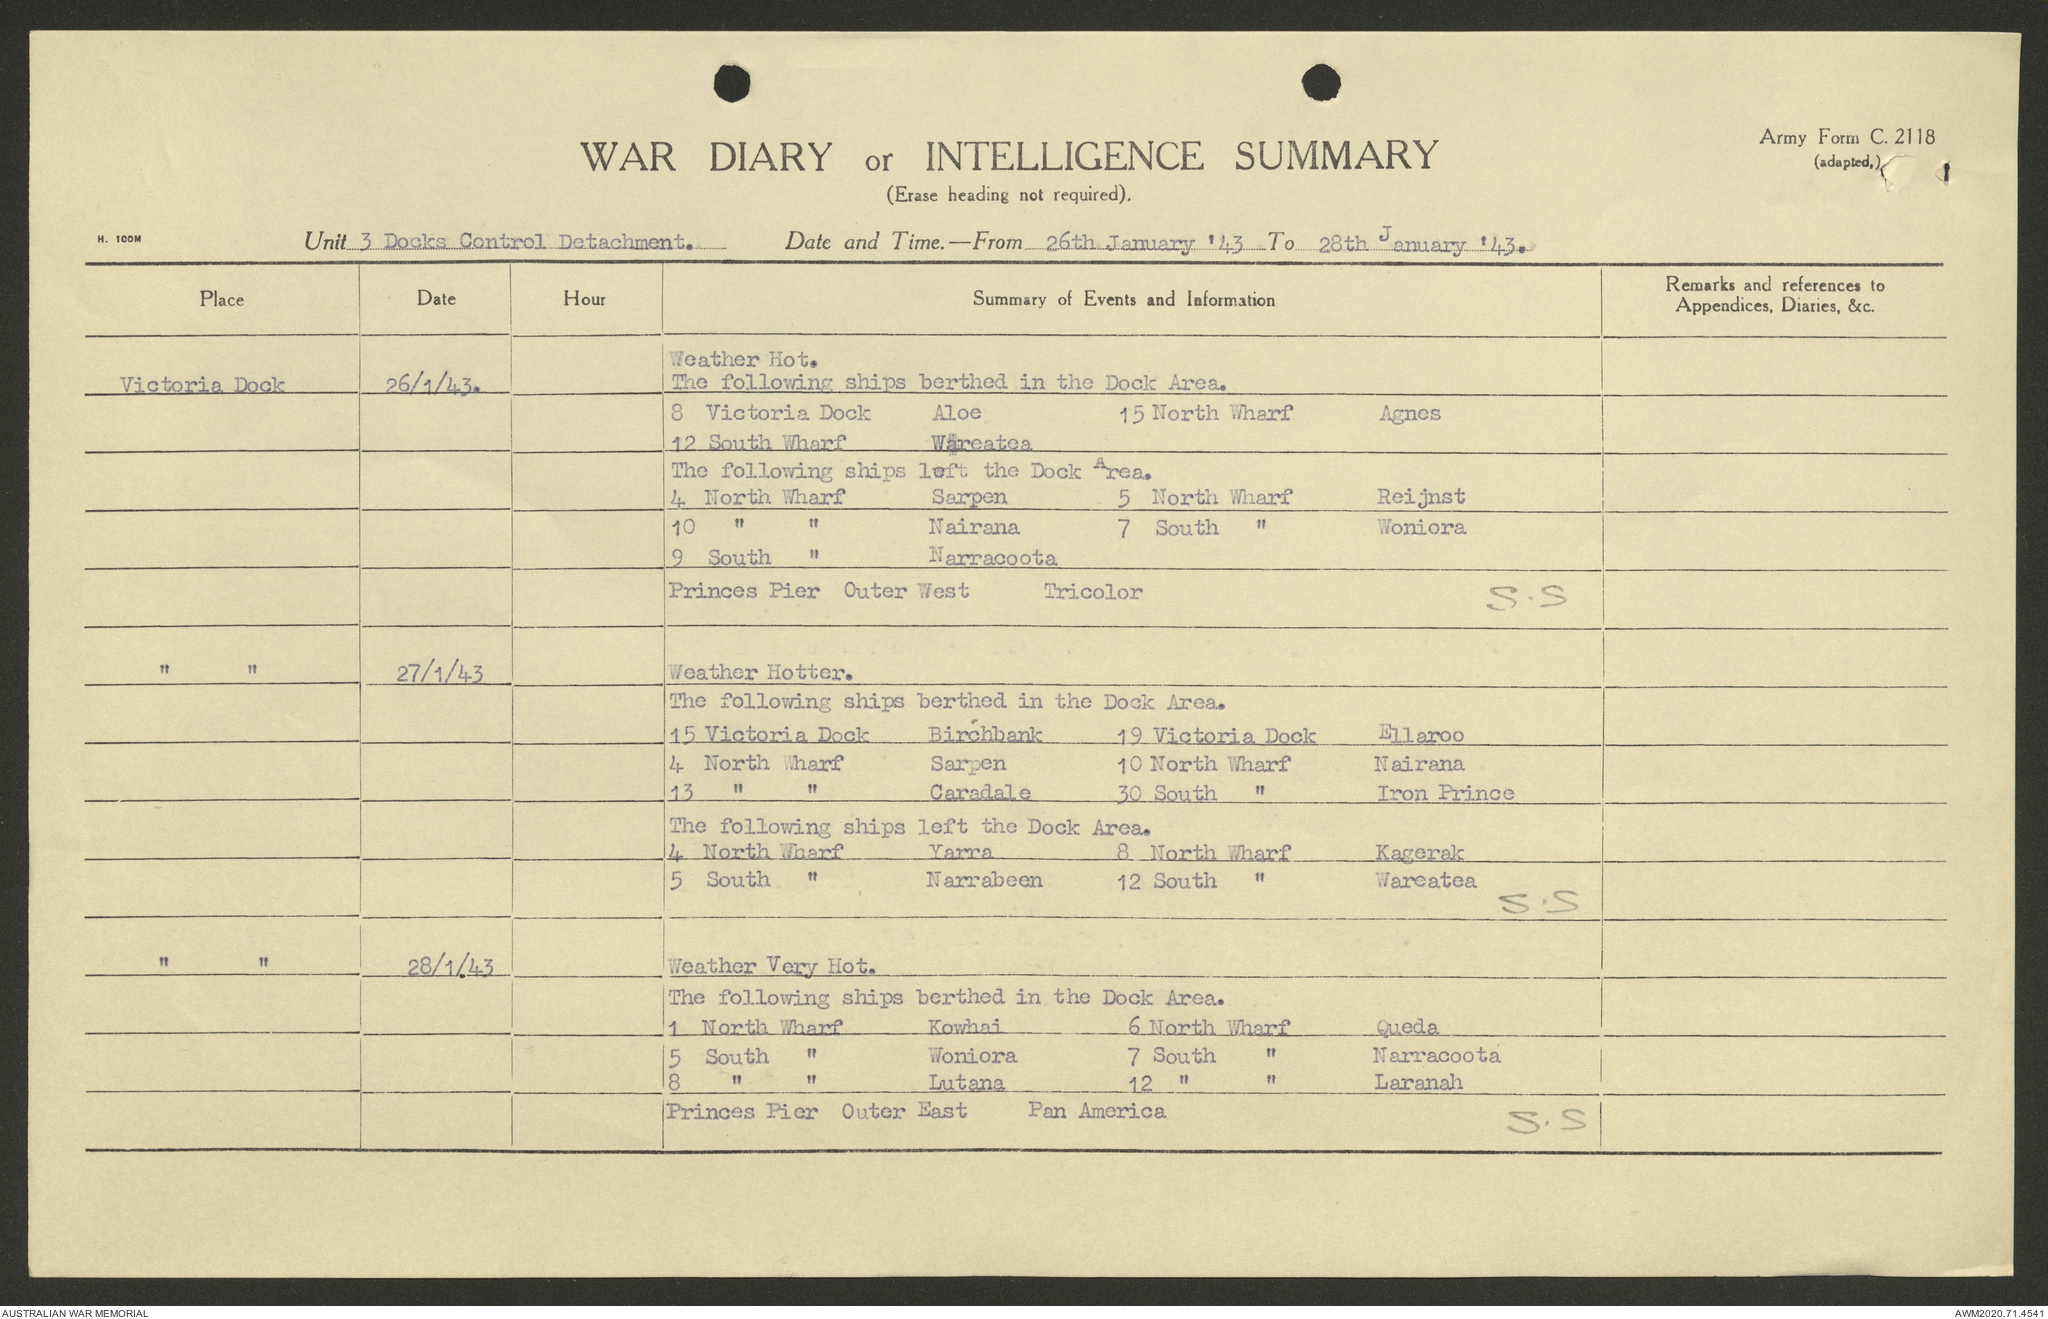 Army Form C. 2118
(adapted,)
WAR DIARY or INTELLIGENCE SUMMARY
(Erase heading not required).
H. 100M
Unit 3 Docks Control Detachment. Date and Time.—From 26th January '43 To 28th January '43.
Place Date Hour Summary of Events and Information Remarks and references to
Appendices, Diaries, &c.
Weather Hot.
Victoria Dock 26/1/43. The following ships berthed in the Dock Area.
8 Victoria Dock Aloe 15 North Wharf Agnes
12 South Wharf Wareatea
The following ships left the Dock Area.
4 North Wharf Sarpen 5 North Wharf Reijnst
10 " " Nairana 7 South " Woniora
9 South " Narracoota
Princes Pier Outer West Tricolor S.S
" " 27/1/43 Weather Hotter.
The following ships berthed in the Dock Area.
15 Victoria Dock Birchbank 19 Victoria Dock Ellaroo
4 North Wharf Sarpen 10 North Wharf Nairana
13 " " Caradale 30 South " Iron Prince
The following ships left the Dock Area.
4 North Wharf Yarra 8 North Wharf Kagerak
5 South " Narrabeen 12 South " Wareatea
S.S
" " 28/1/43 Weather Very Hot.
The following ships berthed in the Dock Area.
1 North Wharf Kowhai 6 North Wharf Queda
5 South " Woniora 7 South " Narracoota
8 " " Lutana 12 " " Laranah
Princes Pier Outer East Pan America S.S
AUSTRALIAN WAR MEMORIAL AWM2020.71.4541